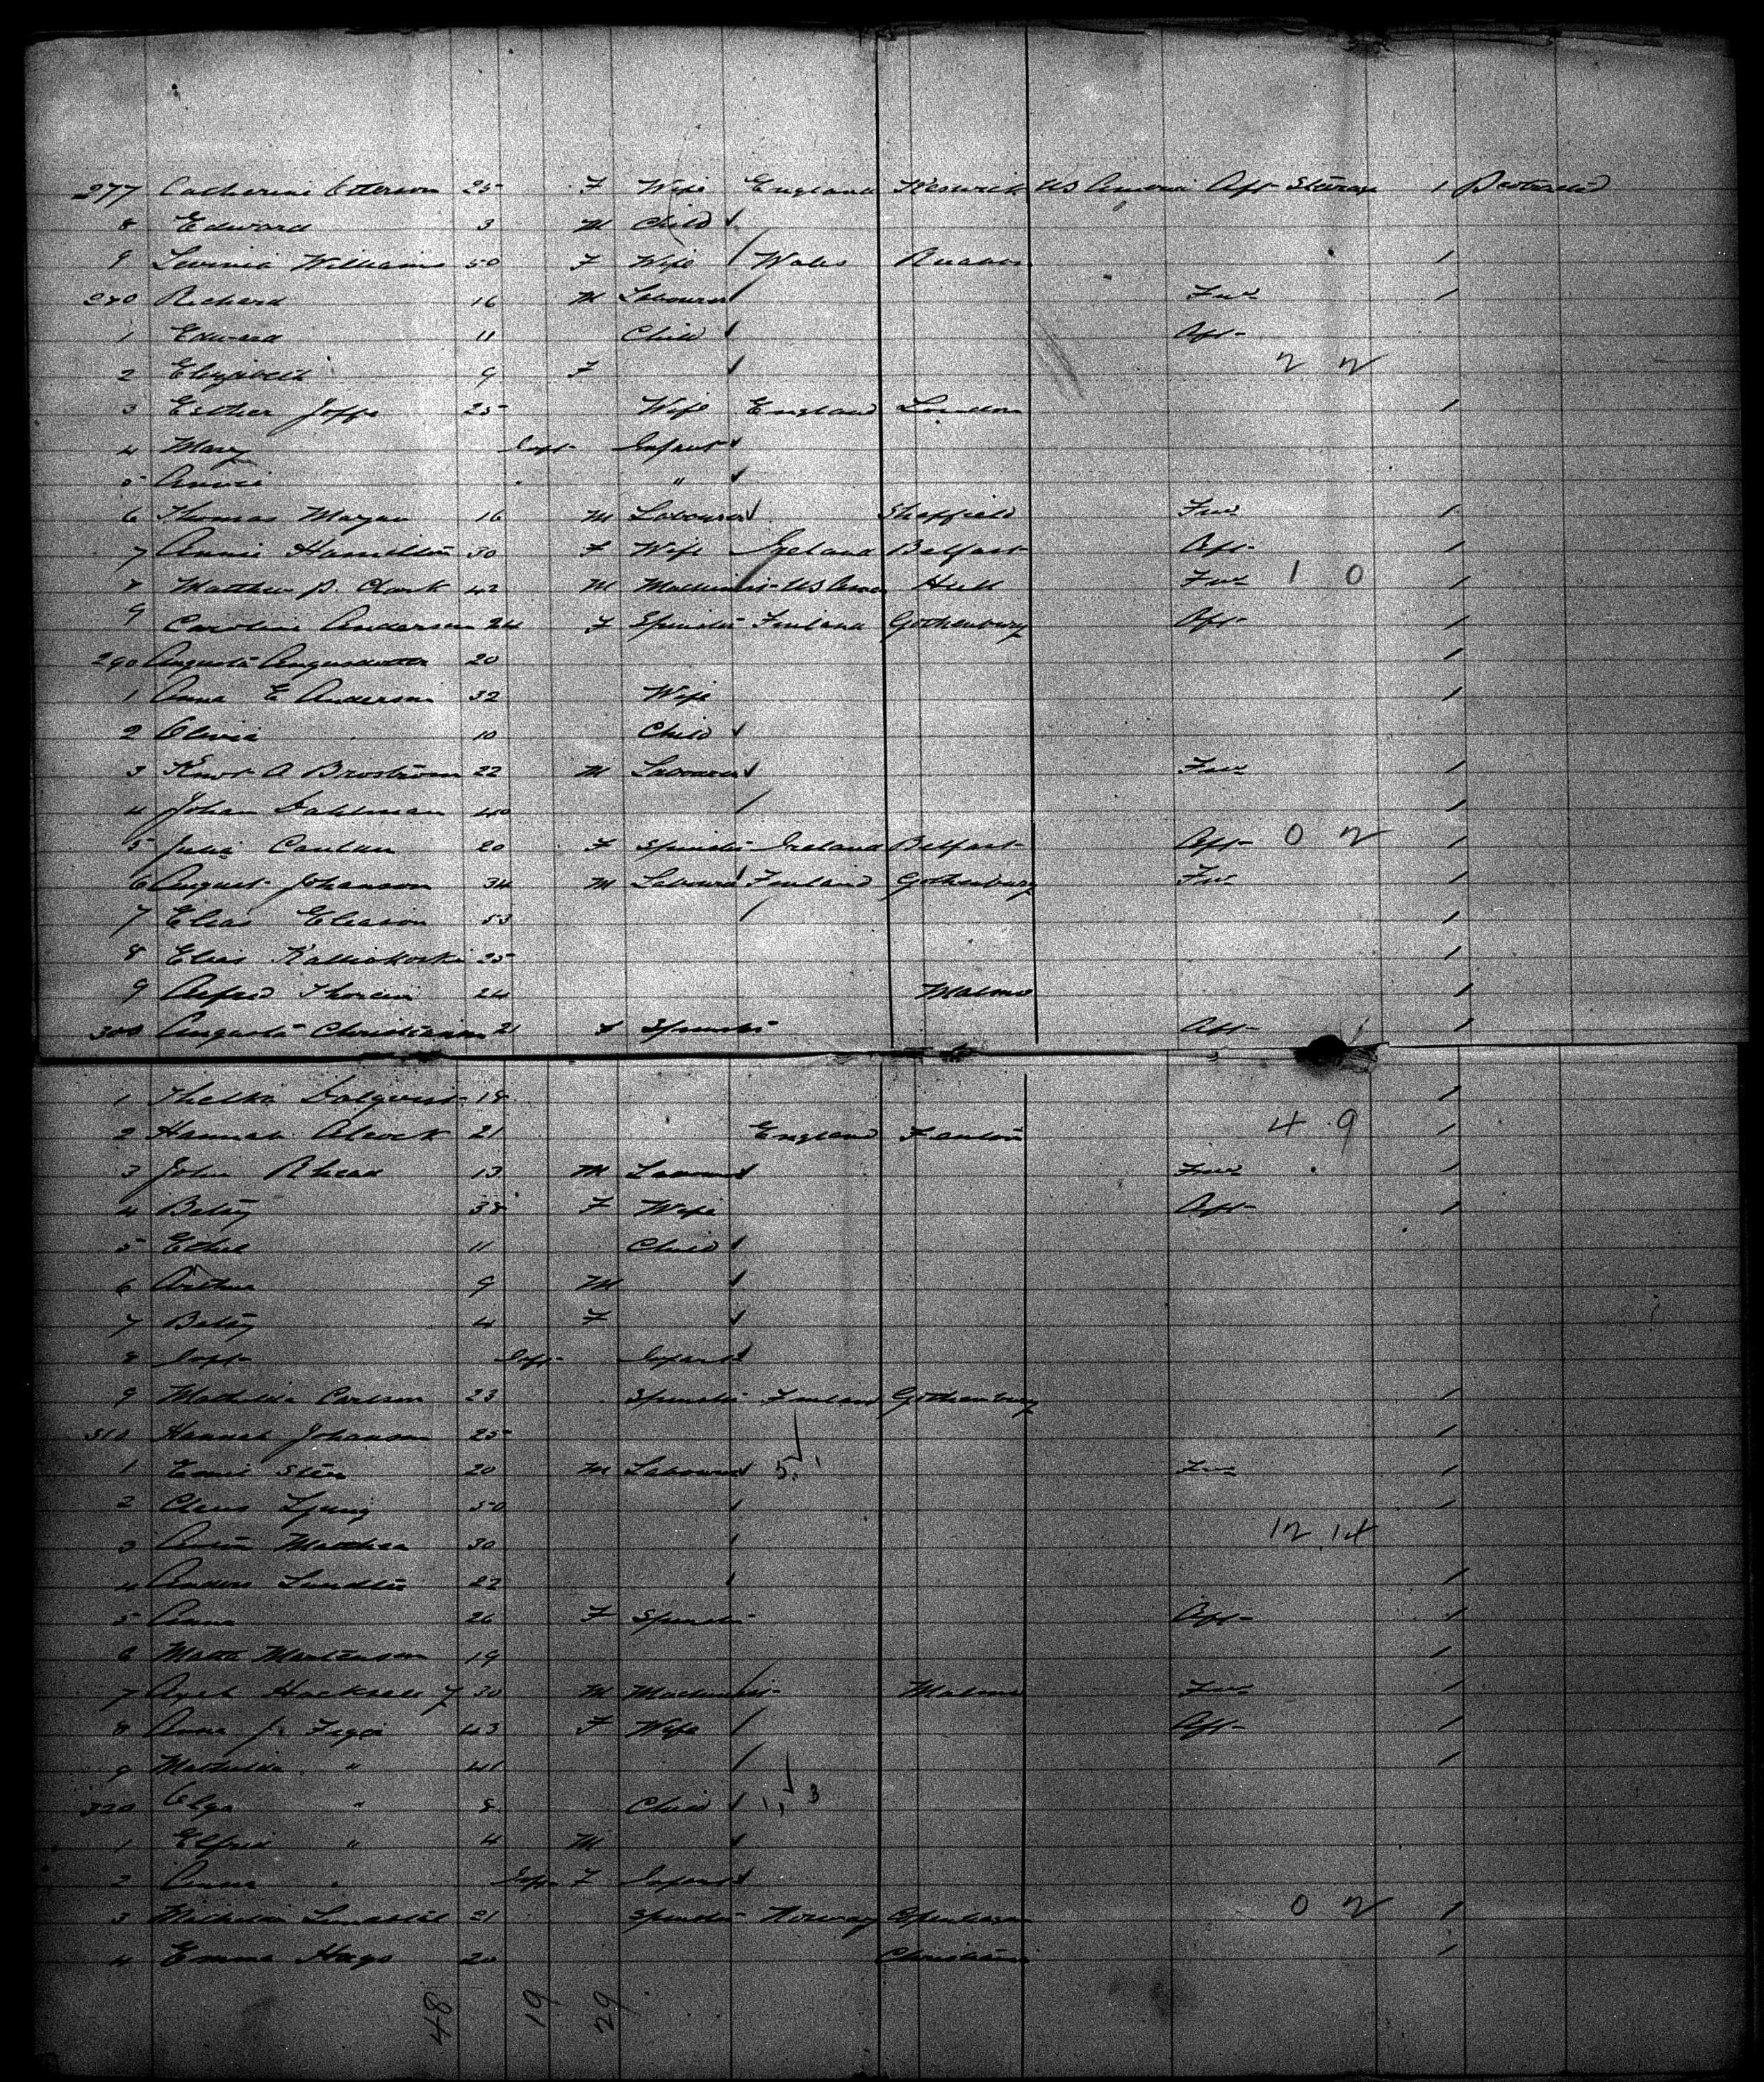 277 Catherine Otterson 25 F Wife England Keswick US America Aft Steerage 1
8 Edward 3 M Child
9 Lavinia Williams 50 F Wife Wales Ruabon 1
280 Richard 16 M Labourer Fwd 1
1 Edward 11 Child Aft
2 Elizabeth 9 F
2 2
3 Esther Joffe 25 Wife England London 1
4 Mary Inft Infant
5 Annie " "
6 Thomas 16 M Labourer Sheffield Fwd 1
7 Annie Hamilton 30 F Wife Ireland Belfast Aft 1
8 Matthew P. Clark 42 M Machinist US Amer Hull Fwd 1 0 1
9 Caroline Anderson 24 F Spinster Finland Gothenburg Aft 1
290 Augusta 20 1
1 Anna E Anderson 32 Wife 1
2 Olivia " 10 Child
3 Knut A Brostrom 22 M Labourer Fwd 1
4 Johan Dahlman 40 1
5 Julia 20 F Spinster Ireland Belfast Aft 0 2 1
6 August Johanson 34 M Labourer Finland Gothenburg Fwd 1
7 Elias Eleason 53 1
8 Elias Kalliokoski 25 1
9 Alfred 24 Malmo 1
300 Augusta 21 F Spinster Aft 1
1 Thekla 18 1
2 Hannah Alcock 21 England Fenton 4 9 1
3 John Rhead 13 M Labourer Fwd 1
4 Betsy 38 F Wife Aft 1
5 Ethel 11 Child
6 Arthur 9 M
7 Betsy 4 F
8 Inft Inft Infant
9 Mathilda Carlson 23 Spinster Finland Gothenburg 1
310 Hannah Johanson 25 1
1 Emil 20 M Labourer 5 1 Fwd 1
2 Claus Ljung 50 1
3 30
12 14
4 Anders 22 1
5 Anna 26 F Spinster Aft 1
6 19 1
7 30 M Machinist Malmo Fwd 1
8 Anna J. 43 F Wife Aft 1
9 Mathilda " 41 1
320 Olga " 8 Child 1, 3
1 " 4 M
2 Anna " Inft F Infant
3 21 Spinster Norway Copenhagen 0 2 1
4 Emma 20 Christiania 1
48 19 29